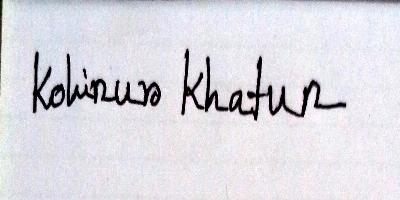 Kohinuro Khatun